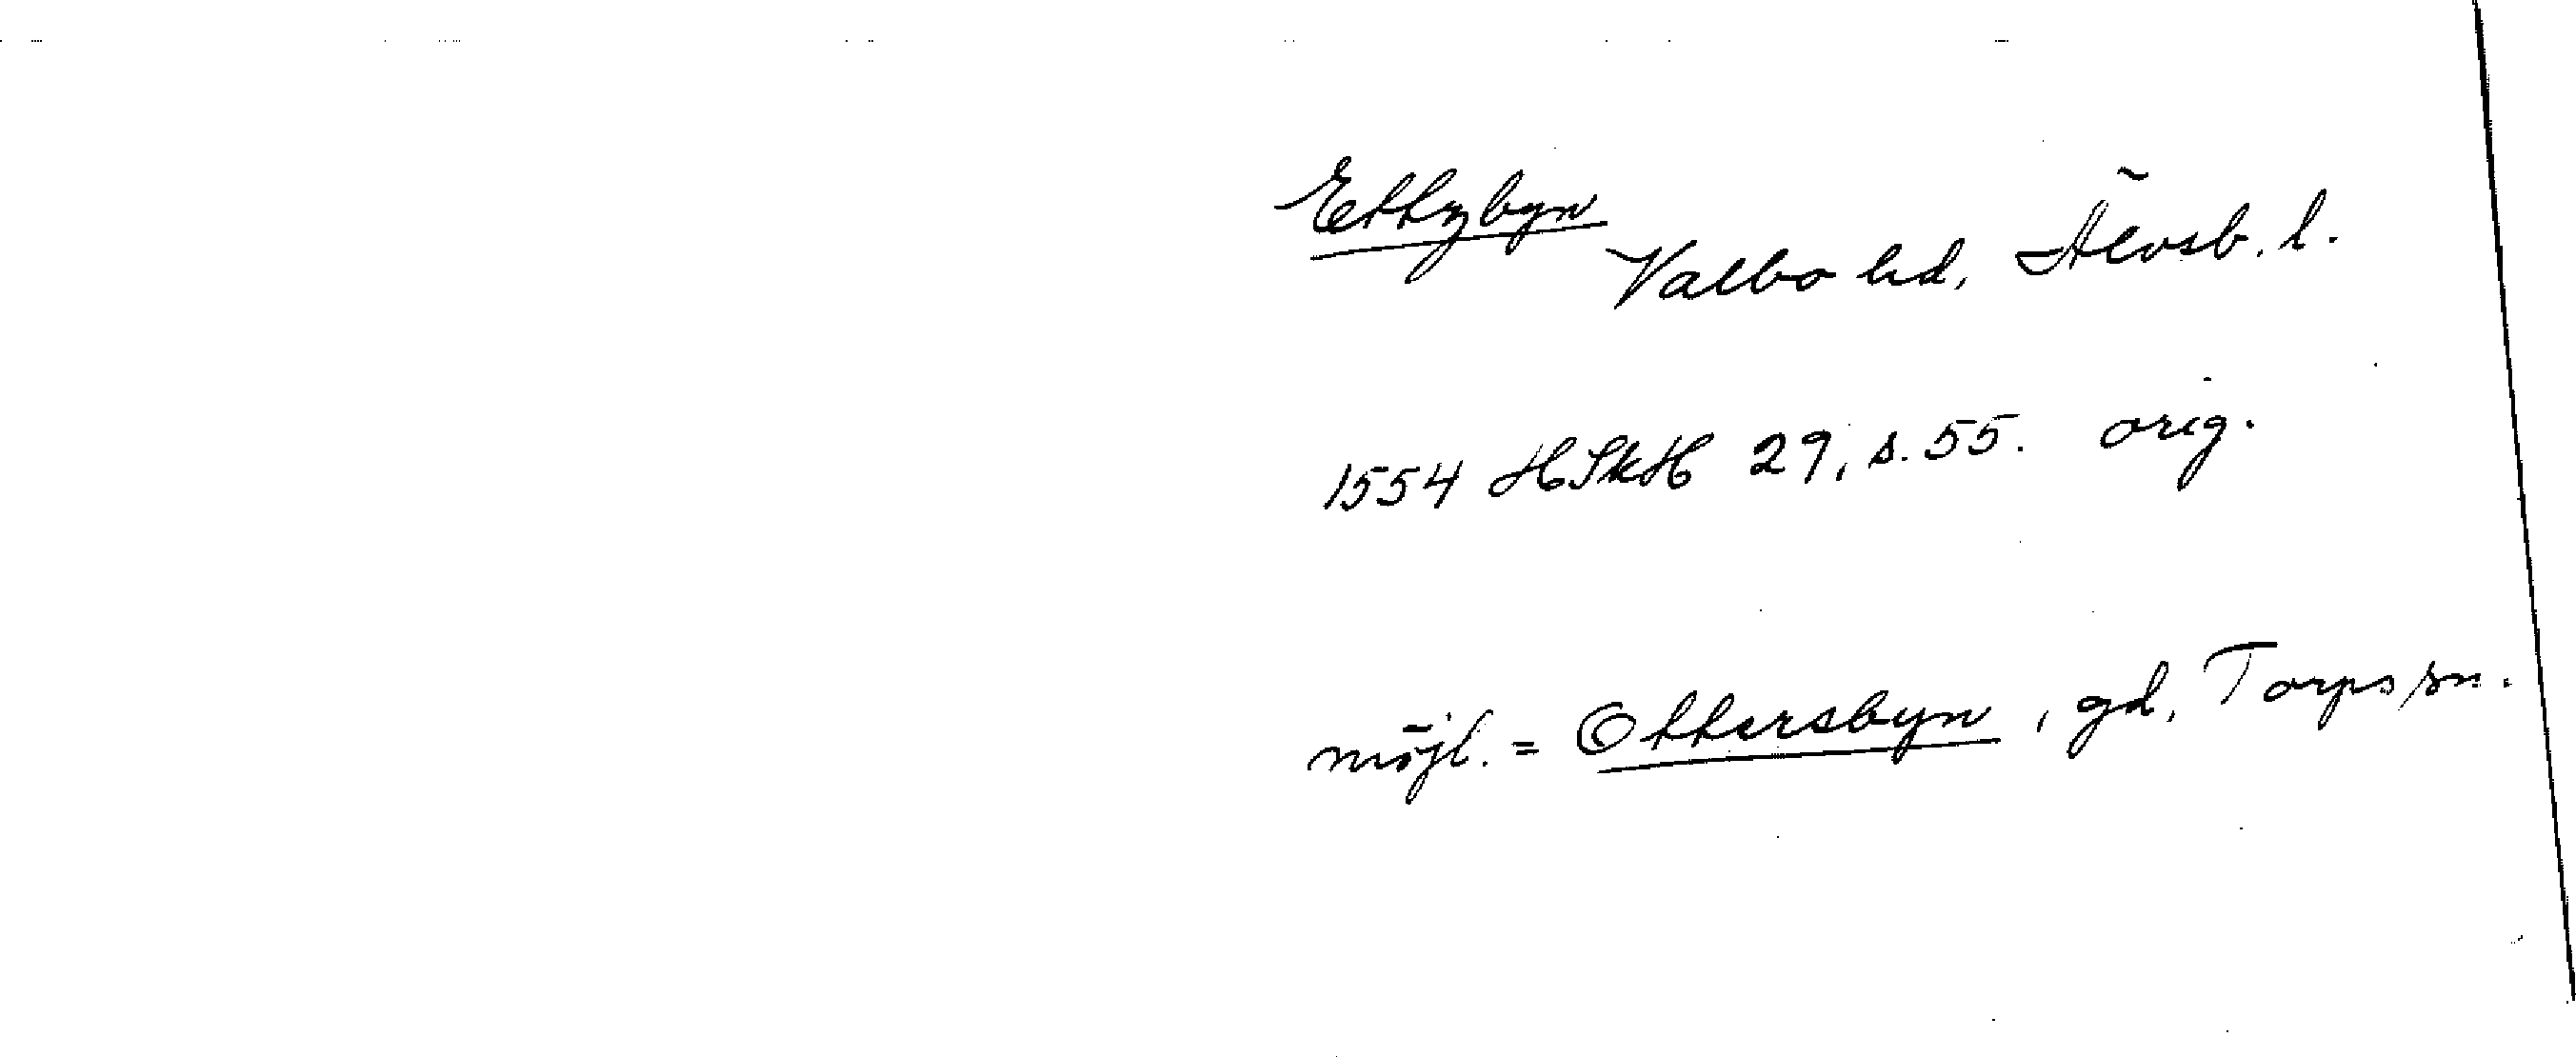 Ettzbyn
Valbo hd, Älvsb. l.
1554 HSkH 29, s. 55. orig.
möjl. = Ottersbyn, gd, Torps sn.